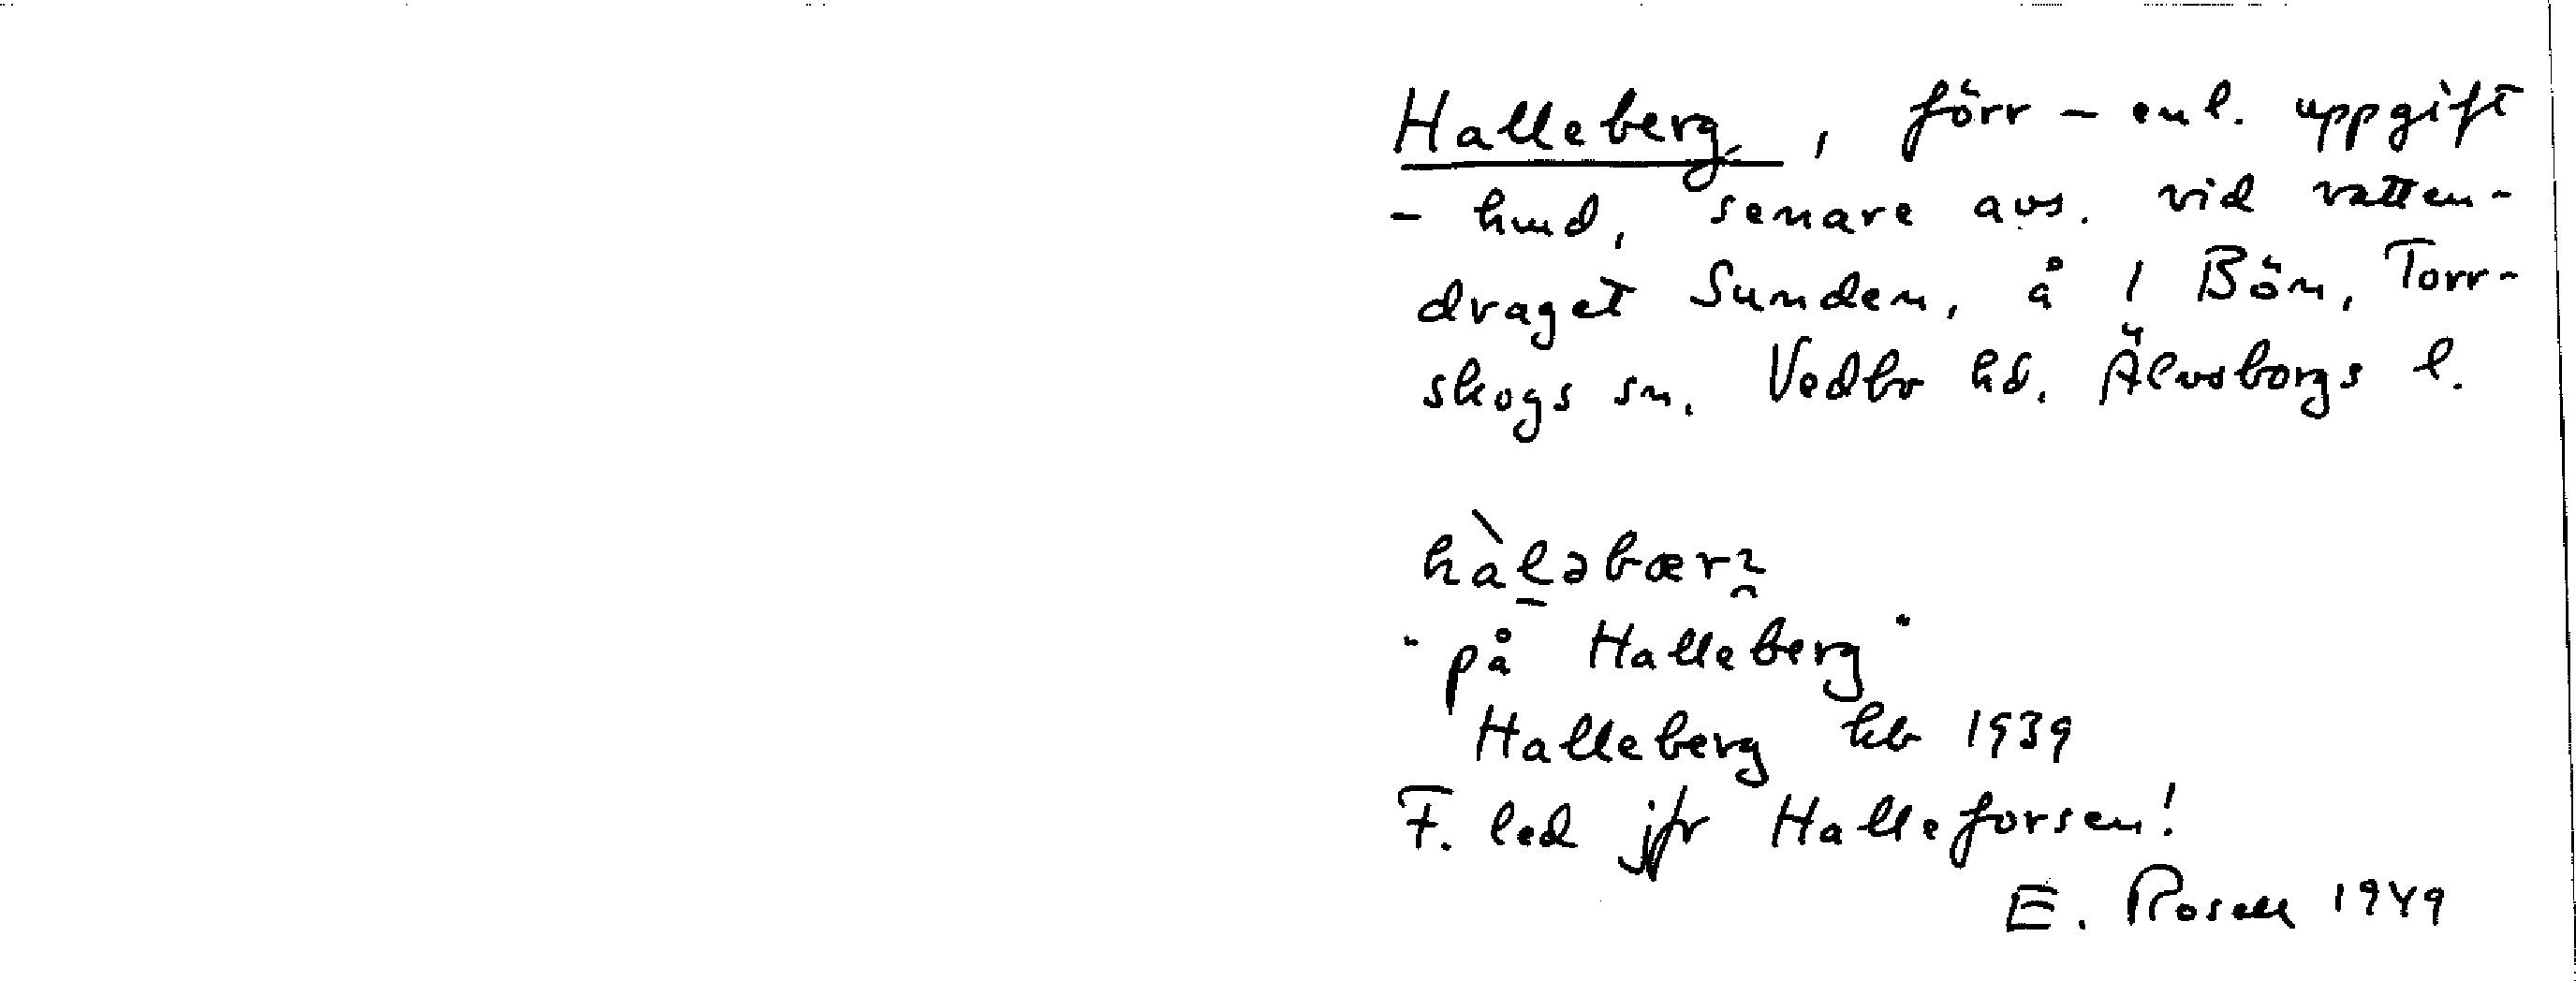 Halleberg, förr – enl. uppgift
– hmd, senare avs. vid vatten-
draget Sunden, å 1 Bön, Torr-
skogs sn. Vedbo hd. Älvsborgs l.
hàl̲əbær
"på Halleberg"
Halleberg kb 1939
F. led jfr Halleforsen!
E. Rosell 1949